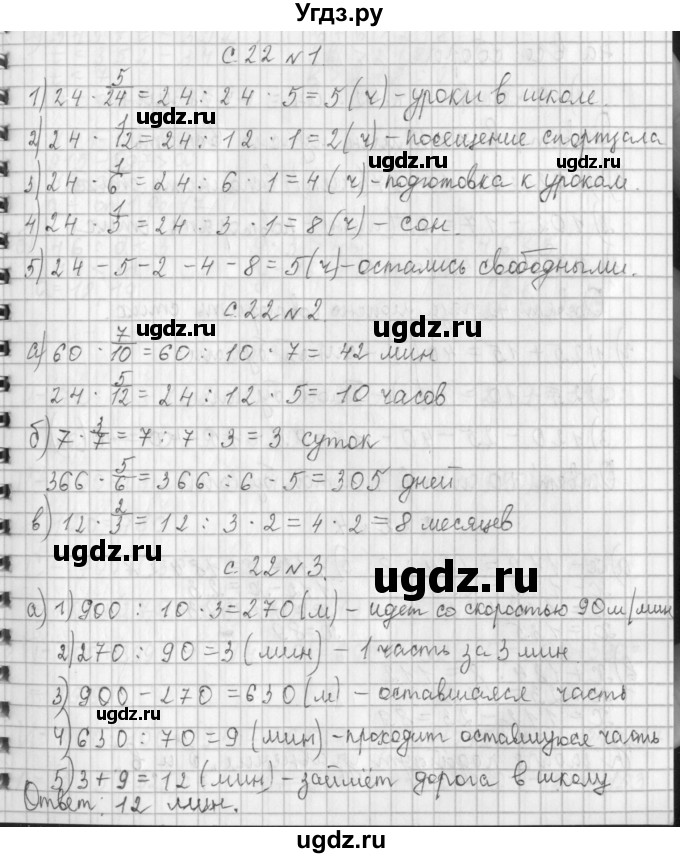 Угдз.ру
с. 22 №1
1) 24 · 5/24 = 24 : 24 · 5 = 5 (ч) – уроки в школе.
2) 24 · 1/12 = 24 : 12 · 1 = 2 (ч) – посещение спортзала
3) 24 · 1/6 = 24 : 6 · 1 = 4 (ч) – подготовка к урокам.
4) 24 · 1/3 = 24 : 3 · 1 = 8 (ч) – сон.
5) 24 – 5 – 2 – 4 – 8 = 5 (ч) – остались свободными.
с. 22 №2.
а) 60 · 7/10 = 60 : 10 · 7 = 42 мин
24 · 5/12 = 24 : 12 · 5 = 10 часов
б) 7 · 3/7 = 7 : 7 · 3 = 3 суток
366 · 5/6 = 366 : 6 · 5 = 305 дней
в) 12 · 2/3 = 12 : 3 · 2 = 4 · 2 = 8 месяцев
с. 22 №3.
а) 1) 900 : 10 · 3 = 270 (м) – идет со скоростью 90 м/мин
2) 270 : 90 = 3 (мин) – 1 часть за 3 мин
3) 900 – 270 = 630 (м) – оставшаяся часть
4) 630 : 70 = 9 (мин) – проходит оставшуюся часть
5) 3 + 9 = 12 (мин) – займёт дорога в школу
Ответ: 12 мин.
ugdz.ru
ugdz.ru
ugdz.ru
ugdz.ru
ugdz.ru
ugdz.ru
ugdz.ru
ugdz.ru
ugdz.ru
ugdz.ru
ugdz.ru
ugdz.ru